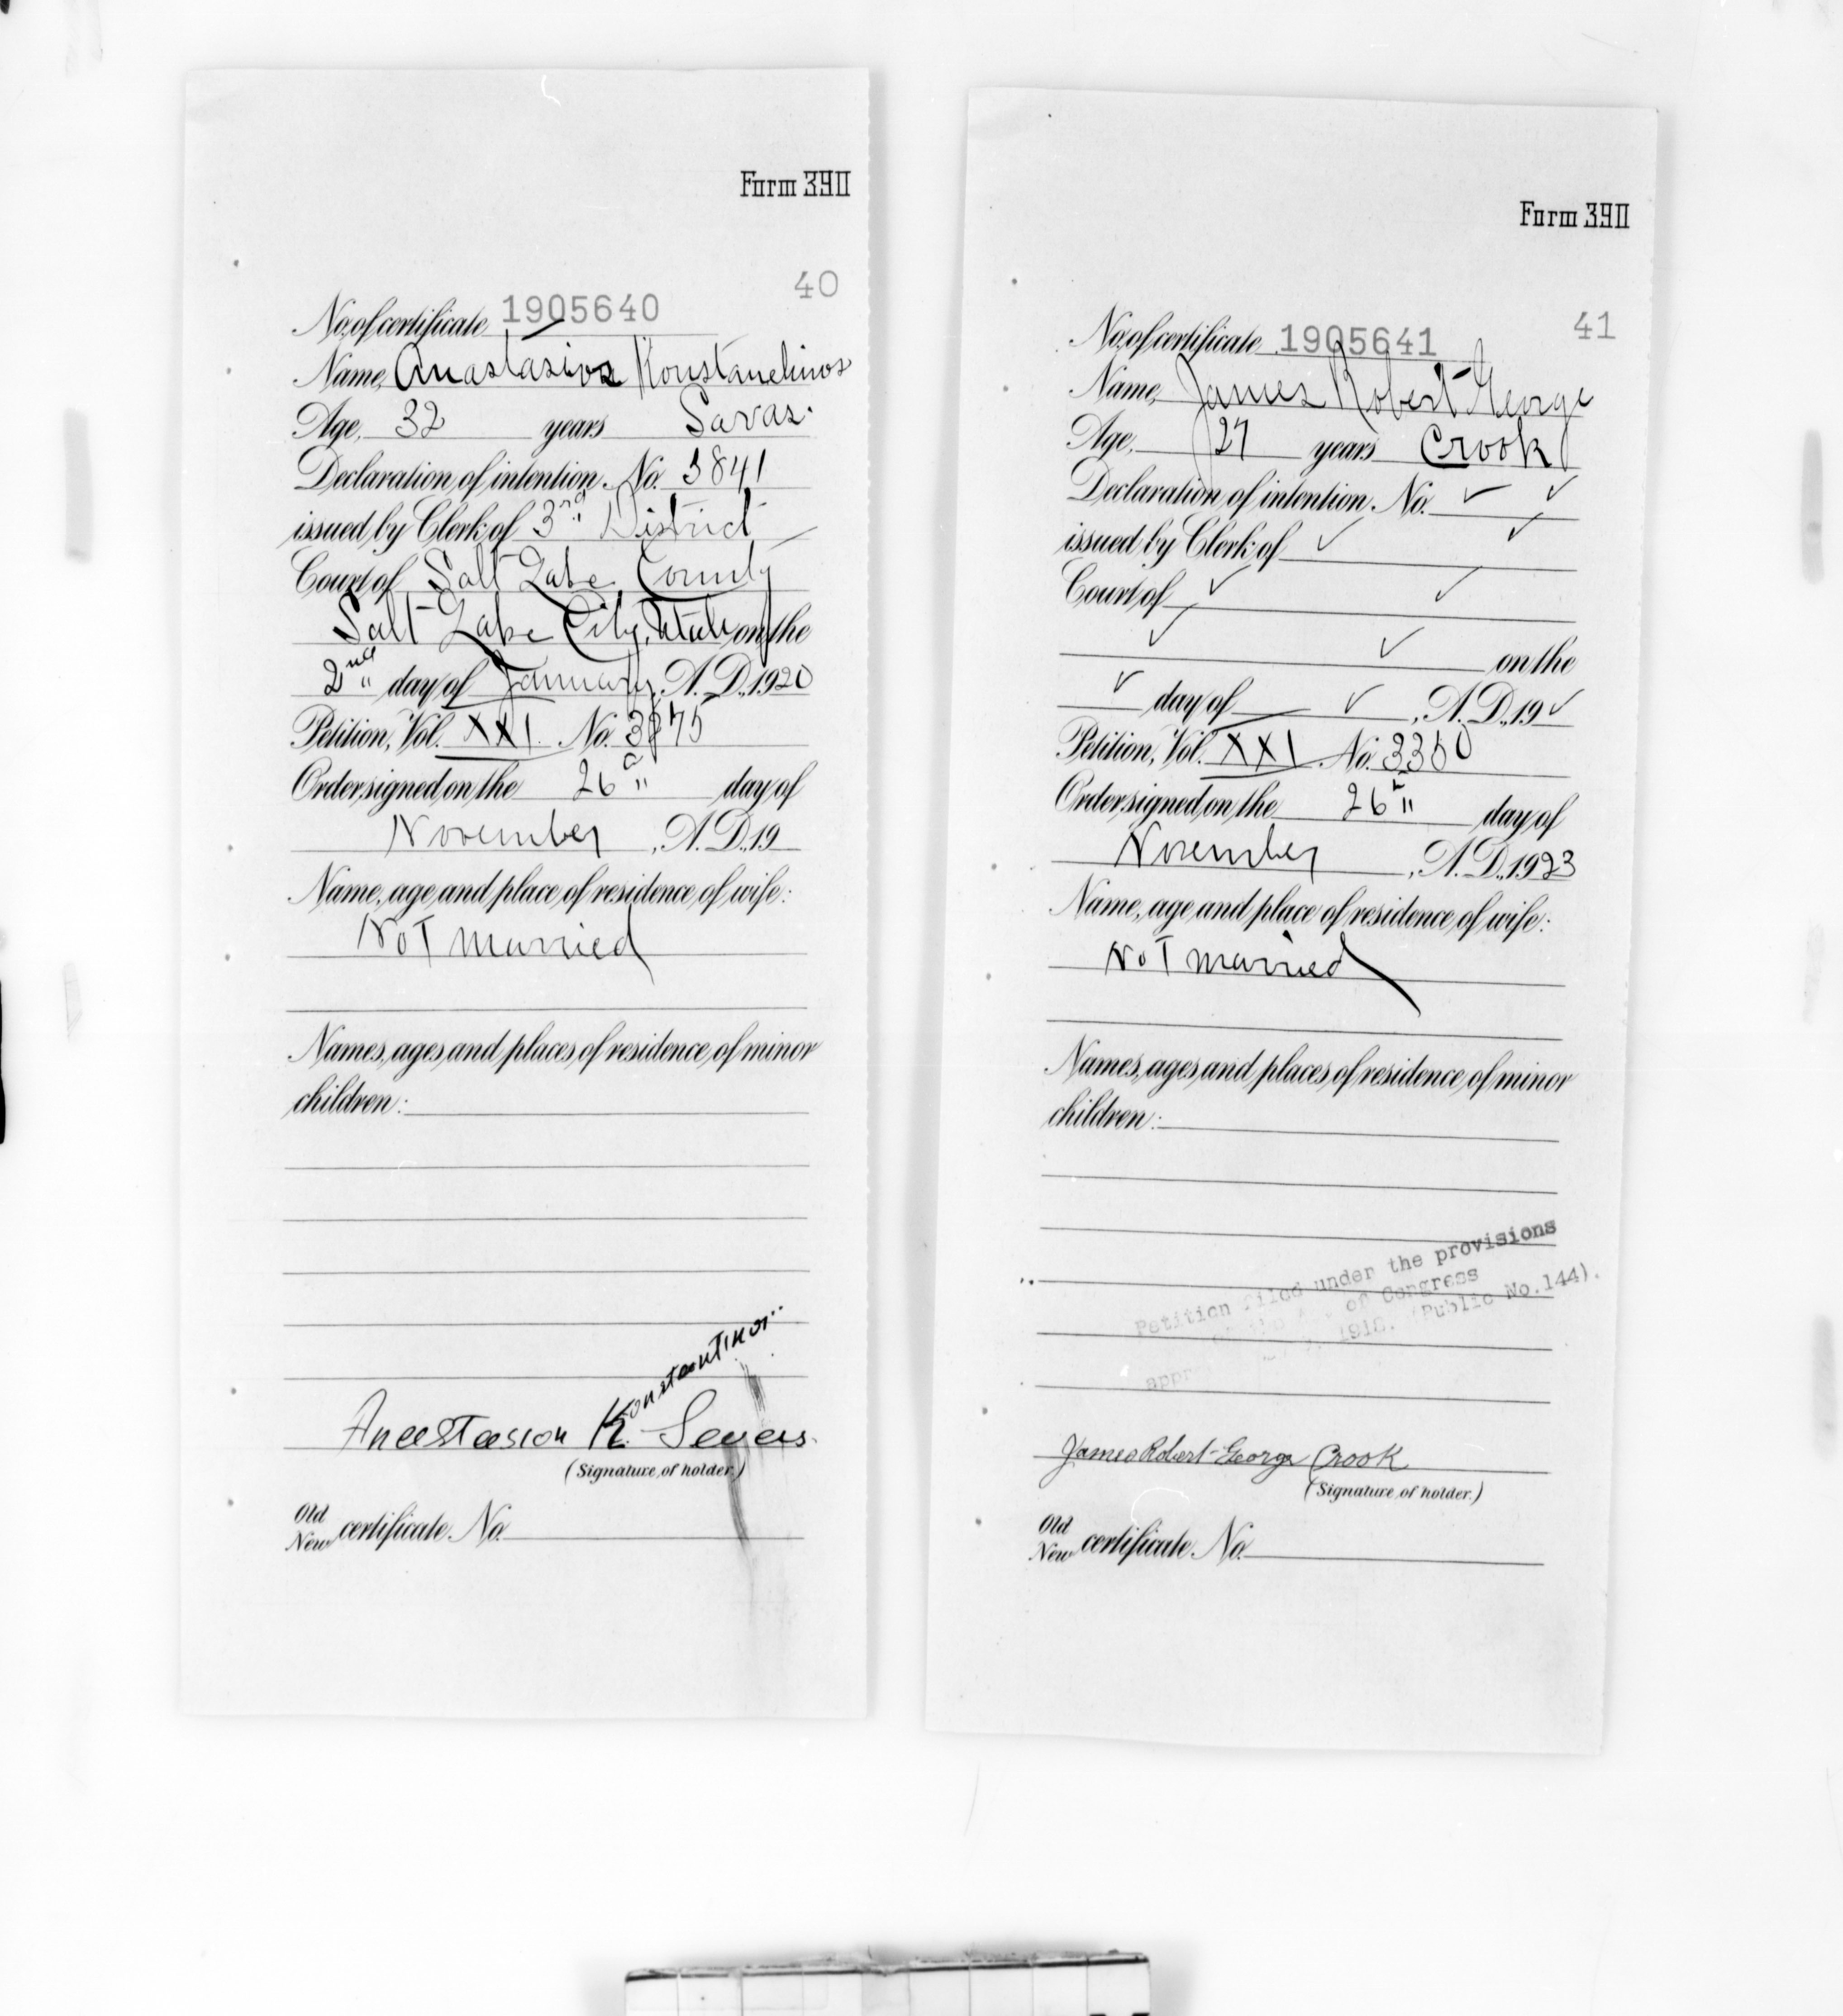 Form 390
40
No. of certificate 1905640
Name, Anastasios Konstandinos
Age, 32 years Savas.
Declaration of intention No. 3841
issued by Clerk of 3rd District
Court of Salt Lake County
Salt Lake City, Utah on the
2nd day of January, A.D., 1920
Petition, Vol. XXI. No.
Order signed on the 26" day of
November, A.D., 19
Name, age and place of residence of wife:
Not married
Names, ages and places of residence of minor
children:
Konstantinos
Anastasion K. Savas.
(Signature of holder.)
Old
New certificate No.
Form 390
41
No. of certificate 1905641
Name, James Robert George
Age, 27 years Crook
Declaration of intention No. ✓ ✓
issued by Clerk of ✓ ✓
Court of ✓ ✓
✓ ✓ on the
✓ day of ✓, A.D., 19 ✓
Petition, Vol. XXI. No.
Order signed on the 26" day of
November, A.D., 1923
Name, age and place of residence of wife:
Not married
Names, ages and places of residence of minor
children:
Petition filed under the provisions
of the Act of Congress
1918. (Public No.144).
James Robert George Crook
(Signature of holder.)
Old
New certificate No.